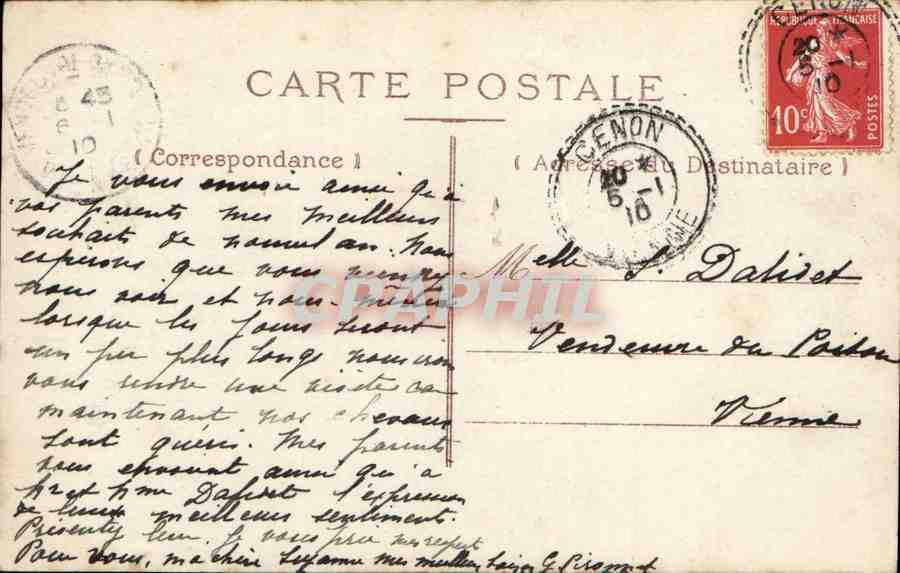 CARTE POSTALE
( Correspondance )
( Adresse du Destinataire )
CENON
20 *
5 -1
10
REPUBLIQUE FRANÇAISE
10c
POSTES
CENON
20 *
5 -1
10
VIENNE
45
6 -1
10
Je vous envoie ainsi qu'à
vos parents mes meilleurs
souhaits de nouvel an. Nous
esperons que vous viendrez
nous voir et nous-mêmes
lorsque les jours seront
un peu plus longs nous irons
vous rendre une visite car
maintenant nos chevaux
sont guéris. Mes parents
vous envoient ainsi qu'à
Mr et Mme Dalidet l'expression
de leurs meilleurs sentiments.
Présentez leur, je vous prie mes respects
Pour vous, ma chère Suzanne mes meilleurs baisers G.
Melle S. Dalidet
Vendeuvre du Poitou
Vienne
CPAPHIL